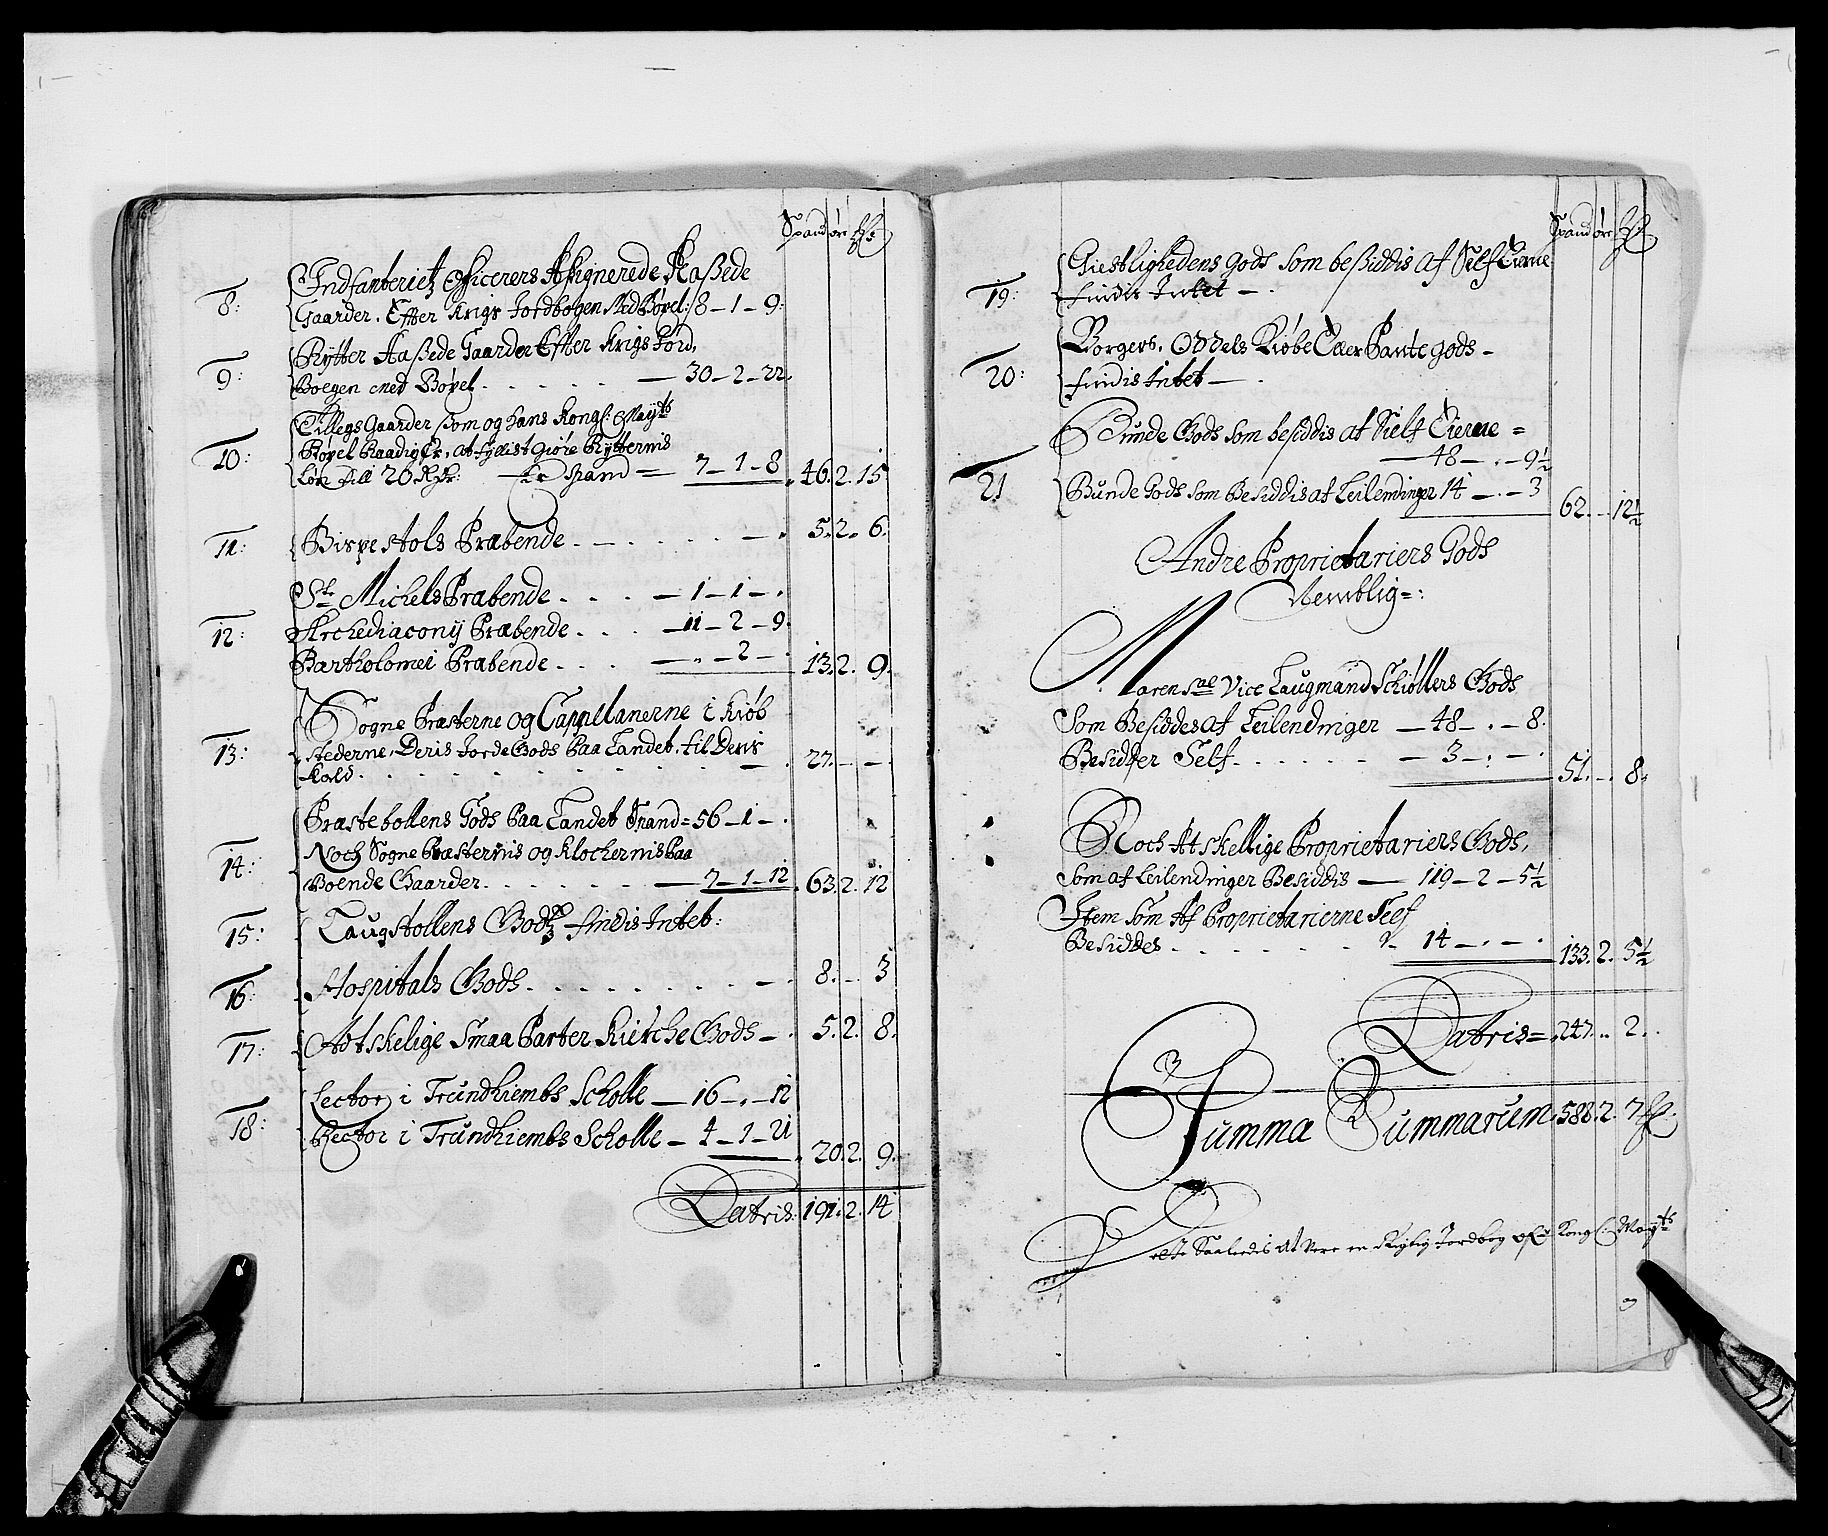 Spand øre
8: Indfanteriets Officerers Assignerede Aaßede
Gaarder. Efter Krigs Jordbogen Med Bøxel: 8 - 1 - 9:
9: Rytter Aaßede Gaarder Efter Krigs Jord,
Boegen med Bøxel. - 30 - 2 - 22.
10: Tillegs Gaarder som og hans Kongl: Mayts
Bøxel Raadig Er, at
Løn till 20 Spand = 7 - 1 - 8 46. 2. 15
11: Bispe stols Præbende - 5. 2. 6.
St. Michels Præbende - 1 - 1 - .
12: Archediaconij Præbende - 11 - 2 - 9.
Bartholomei Præbende - . - 2 - . 13. 2. 9.
Sogne Præsterne og Cappellanerne i Kiøb
13: stederne, Deris Jorde Gods Paa Landet, til Deris
Kald. 27. - -
Præstebollens Gods Paa Landet Spand = 56 - 1 - .
14: Noch Sogne Præsternis og Klochernis Paa
Boende Gaarder. - 7 - 1 - 12 63. 2. 12
15: Laugstollens Godz findis Intet:
16: Hospitals Gods. - 8. - 3
17: Adtskelige Smaa Parter Kirche Gods - 5. 2. 8.
Lector i Trundhiembs Scholle - 16 - . - 12
18: Rector i Trundhiembs Scholle - 4 - 1 - 21
20. 2. 9.
Latris: 191. 2. 14
Spand øre
Giestlighedens Gods som beßiddis af Self Eierne
19: findis Intet - .
Borgers, Oddels Kiøbe Eller Pante gods -
20: findis Intet - .
Bunde Gods som besiddis af Sielf Eierne =
- 48 - . - 9½
21 Bunde Gods som Besiddis af Leilendinger 14 - . - 3
62. - . 12½
Andre Proprietariers Gods
Nemblig =:
Maren Sal Vice Laugmand Schiøllers Gods
Som Besiddes af Leilendinger - 48 - . - 8.
Besidder Self. - 3 - . - .
51. - . 8.
Noch Atskellige Proprietariers Gods,
som af Leilendinger Besiddis - 119 - 2 - 5½
Item som Af Proprietarierne Self
Besiddes - 14 - . - . 133. 2. 5½
Latris = 247. .. 2. .
Summa Summarum 588. 2. 7
Dette Saaledis at vere en Rigtig Jordbog ofuer Kongl: Mayts
og